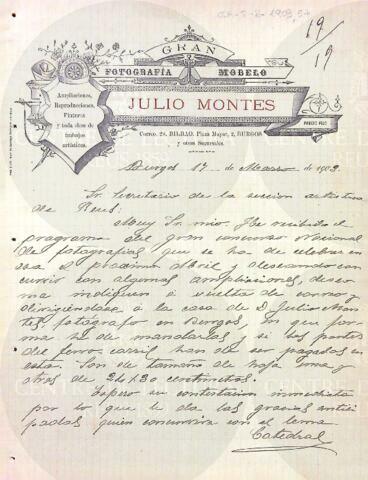 19/
19
GRAN
FOTOGRAFÍA MODELO
Ampliaciones,
Reproducciones,
Pinturas
y toda clase de
trabajos
artísticos.
JULIO MONTES
PRECIO FIJO
Correo, 28, BILBAO. Plaza Mayor, 2, BURGOS
y otras Sucursales.
Burgos 17 de Marzo de 1903.
Sr. Secretario de la seccion artistica
de Reus:
Muy Sr. mio. He recibido el
programa del gran concurso Nacional
de fotografias que se ha de celebrar en
esa el proximo Abril y deseando con
currir con algunas ampliaciones, deseo
me indiquen á vuelta de correo y
dirigiendose á la casa de D. Julio Mon
tes, fotógrafo en Burgos, en que for
ma he de mandarlas y si los portes
del ferro carril han de ser pagados en
esta. Son de tamaño de hoja una y
otras de 24 1.30 centimetros.
Espero su contestacion inmediata
por lo que le da las gracias antici
padas quien concurrira con el lema
Catedral